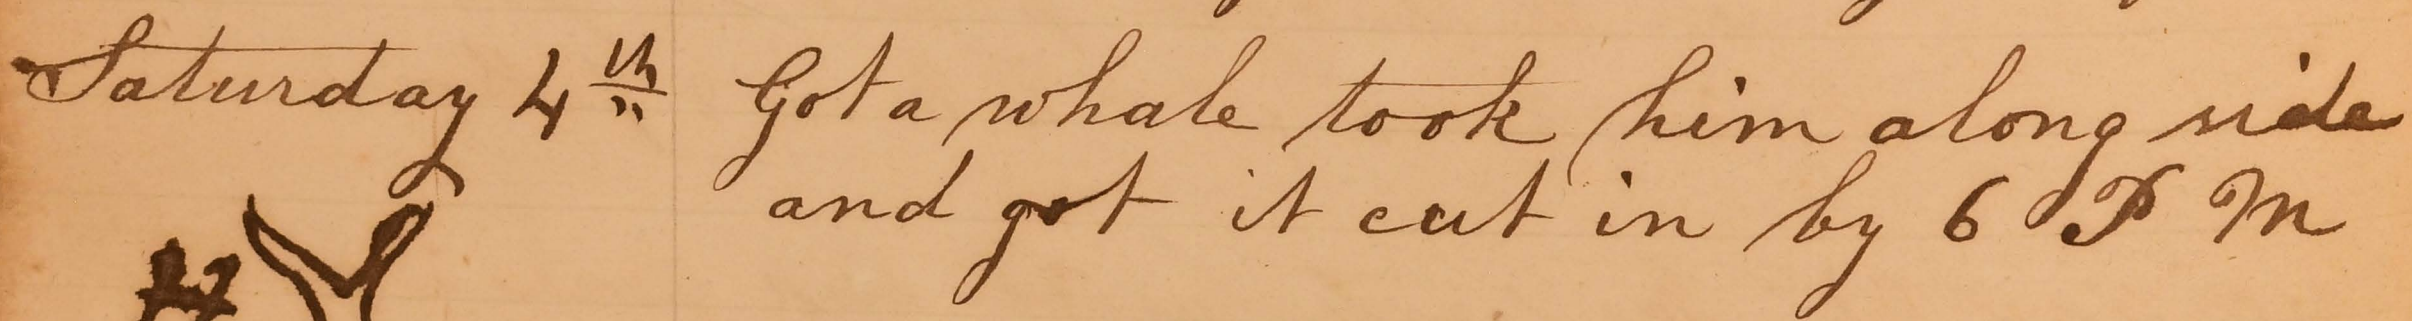 Saturday 4th Got a whale took him along side
and got it cut in by 6 P M